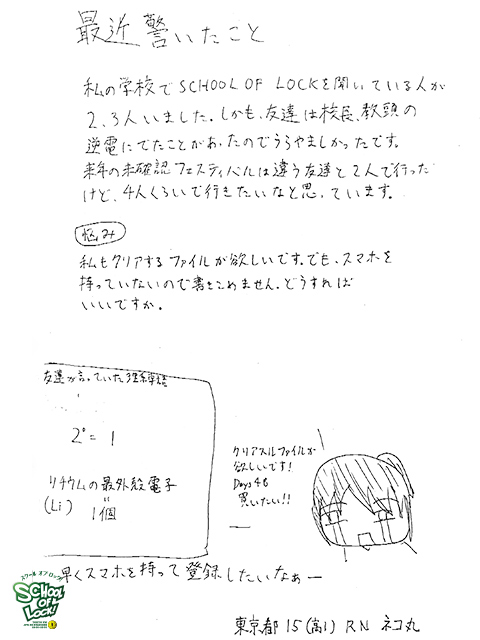 最近 驚いたこと
私の学校でSCHOOL OF LOCKを聞いている人が
2、3人いました。しかも、友達は校長、教頭の
逆電にでたことがあったのでうらやましかったです。
来年の未確認フェスティバルは違う友達と2人で行った
けど、4人くらいで行きたいなと思っています。
悩み
私もクリアするファイルが欲しいです。でも、スマホを
持っていないので書きこめません。どうすれば
いいですか。
友達が言っていた理系単語
2⁰ = 1
リチウムの最外殻電子
(Li) 〃
1個
クリアスルファイルが
欲しいです!
Days 46
買いたい!!
早くスマホを持って登録したいなぁー
スクール オブ ロック!
SCHOOL OF LOCK!
東京都 15(高1) RN ネコ丸